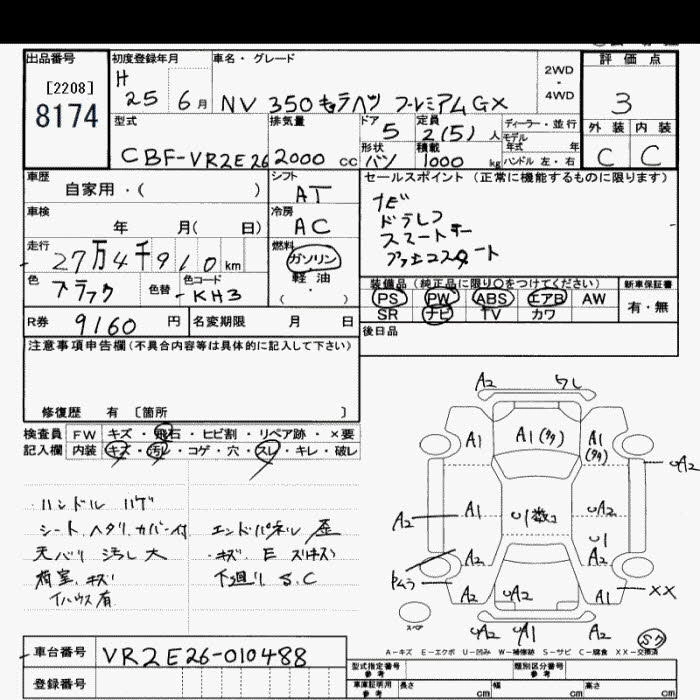 出品番号 初度登録年月 車名・グレード 評価点
[2208] H 2WD
8174 25 6月 NV 350 キャラバン プレミアムGX ・ 3
4WD
型式 排気量 ドア 定員 ディーラー・並行 外装 内装
5 2(5)人 モデル年式 年
CBF-VR2E26 2000 cc 形状 積載 ハンドル 左・右 C C
バン 1000 kg
車歴 シフト セールスポイント (正常に機能するものに限ります)
自家用・( ) AT ナビ
車検 冷房 ドラレコ
年 月( 日) AC スマートキー
走行 燃料 プッシュスタート
27万4千910km ガソリン
色 色替 色コード 軽油・ 装備品 (純正品に限り○をつけてください) 新車保証書
ブラック KH3 ( ・ ) PS PW ABS エアB AW 有・無
SR ナビ TV カワ
R券 9160円 名変期限 月 日 後日品
注意事項申告欄(不具合内容等は具体的に記入して下さい)
修復歴 有 〔箇所 〕
検査員 FW キズ・飛石・ヒビ割・リペア跡・×要
記入欄 内装 キズ・汚れ・コゲ・穴・スレ・キレ・破レ
A2 ワレ
A1 A1(タタ) A1(タタ)
A2
・ハンドル ハゲ
シート、ヘタリ、カバー付 エンドパネル 歪
天バリ 汚し大 ・キズ、E
荷室、キズ 下廻り S.C
有
A2 A1 U数コ A2
U
A2 A2
A2 A2 A1 XX
スペア
A2 A1 A2
A-キズ E-エクボ U-凹み W-補修跡 S-サビ C-腐食 XX-交換済
車台番号 VR2E26-010488
登録番号
型式指定番号 参考 類別区分番号 参考
車庫証明用 参考 長さ cm 幅 cm 高さ cm